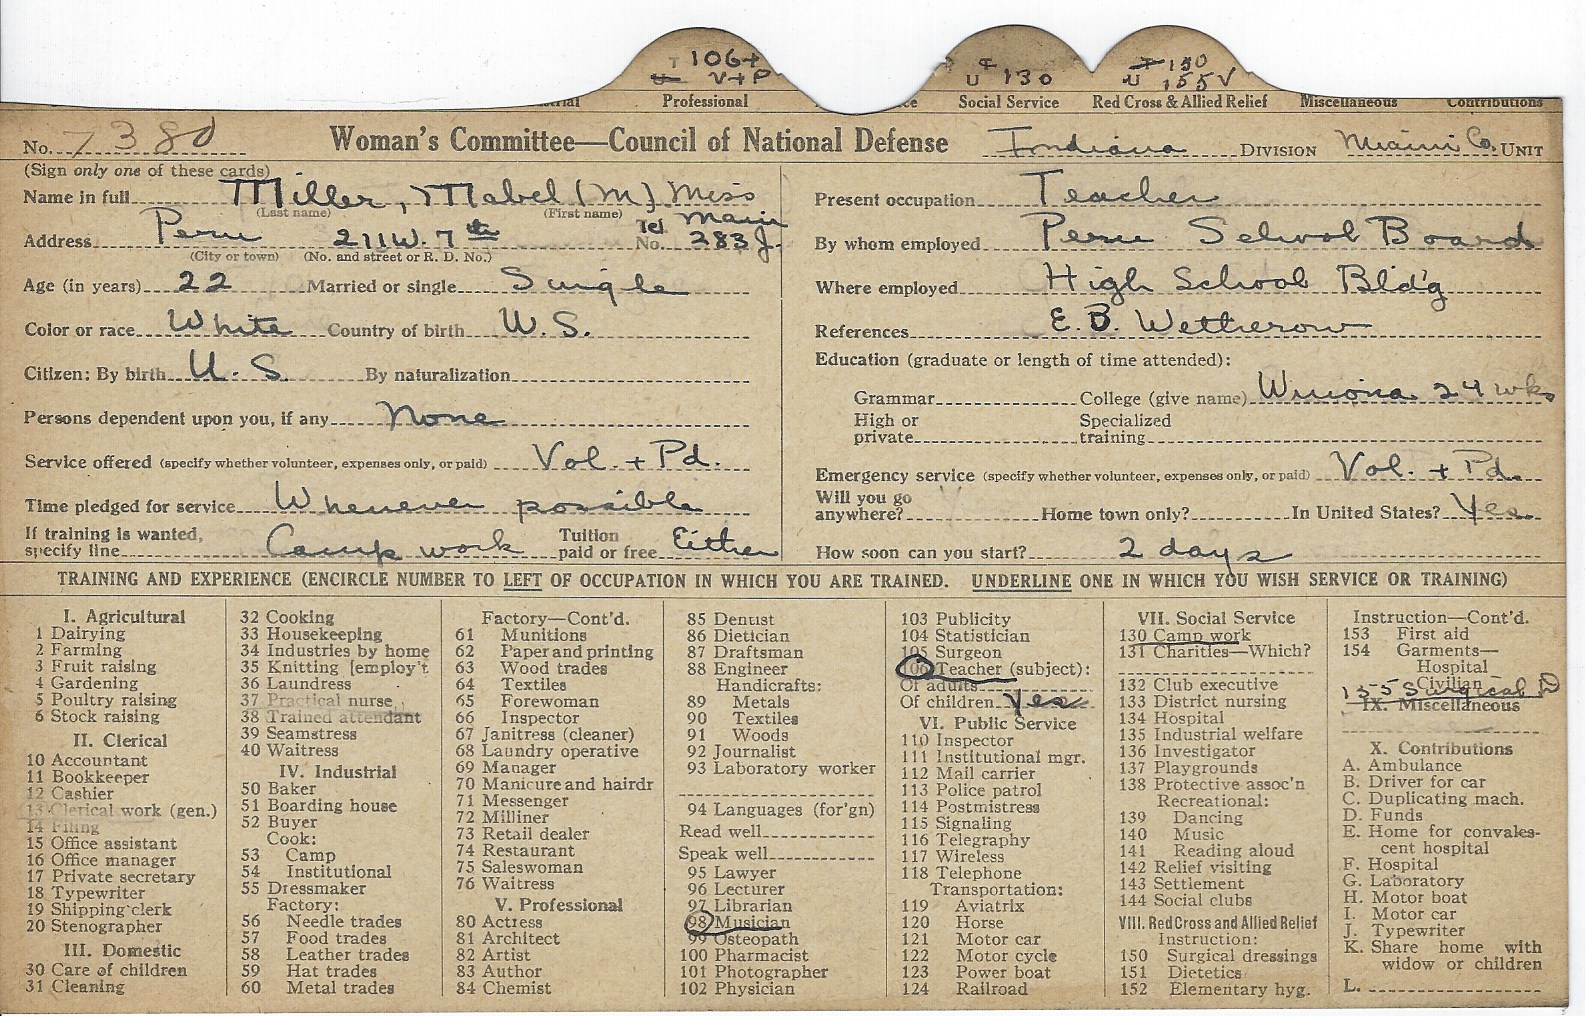 106+
V+P
U 130
130
U 155 V
Professional
Social Service
Red Cross & Allied Relief
Miscellaneous
Contributions
No. 7380
Woman's Committee—Council of National Defense
Indiana DIVISION Miami Co. UNIT
(Sign only one of these cards)
Name in full Miller, Mabel (M) Miss
(Last name) (First name)
Address Peru 211 W. 7th Tel. No. Main 283 J.
(City or town) (No. and street or R. D. No.)
Age (in years) 22 Married or single Single
Color or race White Country of birth U.S.
Citizen: By birth U.S. By naturalization
Persons dependent upon you, if any None
Service offered (specify whether volunteer, expenses only, or paid) Vol. + Pd.
Time pledged for service Whenever possible
If training is wanted, specify line Camp work Tuition paid or free Either
Present occupation Teacher
By whom employed Peru School Board
Where employed High School Bld'g
References E. B. Wetherow
Education (graduate or length of time attended):
Grammar College (give name) Winona 24 wks
High or private Specialized training
Emergency service (specify whether volunteer, expenses only, or paid) Vol. + Pd.
Will you go anywhere? Home town only? In United States? Yes
How soon can you start? 2 days
TRAINING AND EXPERIENCE (ENCIRCLE NUMBER TO LEFT OF OCCUPATION IN WHICH YOU ARE TRAINED. UNDERLINE ONE IN WHICH YOU WISH SERVICE OR TRAINING)
I. Agricultural
1 Dairying
2 Farming
3 Fruit raising
4 Gardening
5 Poultry raising
6 Stock raising
II. Clerical
10 Accountant
11 Bookkeeper
12 Cashier
13 Clerical work (gen.)
14 Filing
15 Office assistant
16 Office manager
17 Private secretary
18 Typewriter
19 Shipping clerk
20 Stenographer
III. Domestic
30 Care of children
31 Cleaning
32 Cooking
33 Housekeeping
34 Industries by home
35 Knitting [employ't
36 Laundress
37 Practical nurse
38 Trained attendant
39 Seamstress
40 Waitress
IV. Industrial
50 Baker
51 Boarding house
52 Buyer
Cook:
53 Camp
54 Institutional
55 Dressmaker
Factory:
56 Needle trades
57 Food trades
58 Leather trades
59 Hat trades
60 Metal trades
Factory—Cont'd.
61 Munitions
62 Paper and printing
63 Wood trades
64 Textiles
65 Forewoman
66 Inspector
67 Janitress (cleaner)
68 Laundry operative
69 Manager
70 Manicure and hairdr
71 Messenger
72 Milliner
73 Retail dealer
74 Restaurant
75 Saleswoman
76 Waitress
V. Professional
80 Actress
81 Architect
82 Artist
83 Author
84 Chemist
85 Dentist
86 Dietician
87 Draftsman
88 Engineer
Handicrafts:
89 Metals
90 Textiles
91 Woods
92 Journalist
93 Laboratory worker
94 Languages (for'gn)
Read well
Speak well
95 Lawyer
96 Lecturer
97 Librarian
98 Musician
99 Osteopath
100 Pharmacist
101 Photographer
102 Physician
103 Publicity
104 Statistician
105 Surgeon
106 Teacher (subject):
Of adults
Of children Yes
VI. Public Service
110 Inspector
111 Institutional mgr.
112 Mail carrier
113 Police patrol
114 Postmistress
115 Signaling
116 Telegraphy
117 Wireless
118 Telephone
Transportation:
119 Aviatrix
120 Horse
121 Motor car
122 Motor cycle
123 Power boat
124 Railroad
VII. Social Service
130 Camp work
131 Charities—Which?
132 Club executive
133 District nursing
134 Hospital
135 Industrial welfare
136 Investigator
137 Playgrounds
138 Protective assoc'n
Recreational:
139 Dancing
140 Music
141 Reading aloud
142 Relief visiting
143 Settlement
144 Social clubs
VIII. Red Cross and Allied Relief
Instruction:
150 Surgical dressings
151 Dietetics
152 Elementary hyg.
Instruction—Cont'd.
153 First aid
154 Garments—
Hospital
Civilian
155 Surgical D
IX. Miscellaneous
X. Contributions
A. Ambulance
B. Driver for car
C. Duplicating mach.
D. Funds
E. Home for convalescent hospital
F. Hospital
G. Laboratory
H. Motor boat
I. Motor car
J. Typewriter
K. Share home with
widow or children
L.